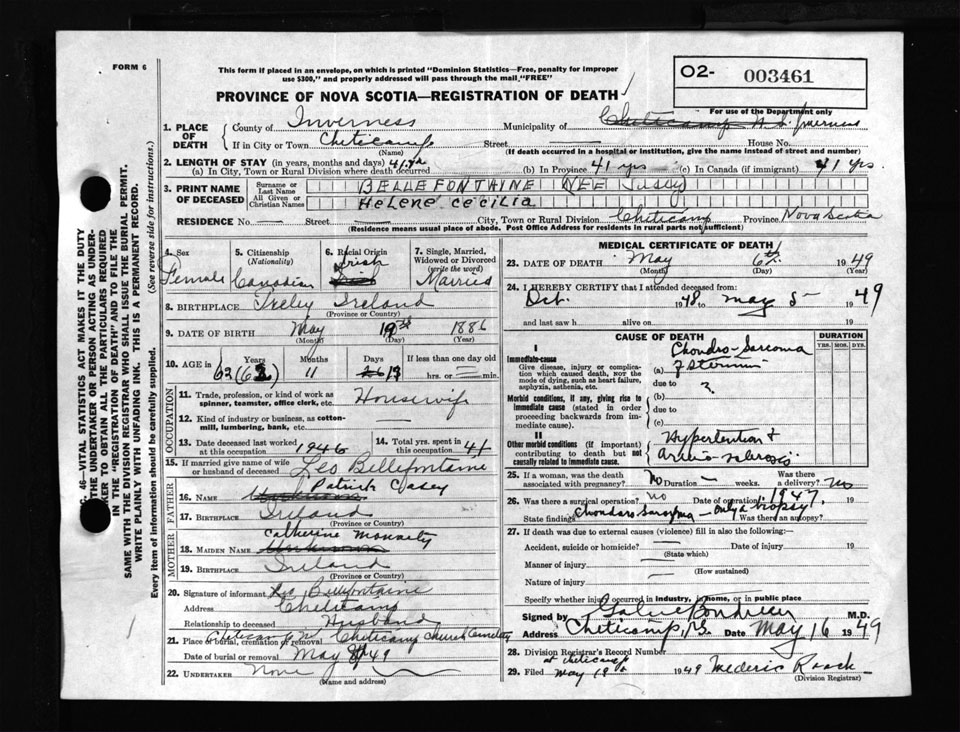 FORM 6
This form if placed in an envelope, on which is printed "Dominion Statistics—Free, penalty for improper
use $300," and properly addressed will pass through the mail "FREE"
O2- 003461
PROVINCE OF NOVA SCOTIA—REGISTRATION OF DEATH
For use of the Department only
1. PLACE OF DEATH
County of Inverness Municipality of Cheticamp N.S. Inverness
If in City or Town Cheticamp Street House No.
(Name) (If death occurred in a hospital or institution, give the name instead of street and number)
2. LENGTH OF STAY (in years, months and days)
(a) In City, Town or Rural Division where death occurred (b) In Province 41 yrs (c) In Canada (if immigrant) 41 yrs.
3. PRINT NAME OF DECEASED
Surname or Last Name BELLEFONTAINE NEE
All Given or Christian Names Helene Cecilia
RESIDENCE No. Street City, Town or Rural Division Cheticamp Province Nova Scotia
(Residence means usual place of abode. Post Office Address for residents in rural parts not sufficient)
4. Sex Female
5. Citizenship (Nationality) Canadian
6. Racial Origin Irish
7. Single, Married, Widowed or Divorced (write the word) Married
8. BIRTHPLACE Ireland
(Province or Country)
9. DATE OF BIRTH May 19th 1886
(Month) (Day) (Year)
10. AGE in Years 62 Months 11 Days If less than one day old
hrs. or min.
OCCUPATION
11. Trade, profession, or kind of work as spinner, teamster, office clerk, etc. Housewife
12. Kind of industry or business, as cotton-mill, lumbering, bank, etc.
13. Date deceased last worked at this occupation 1946
14. Total yrs. spent in this occupation 41
15. If married give name of wife or husband of deceased Leo Bellefontaine
FATHER
16. Name Patrick Casey
17. Birthplace Ireland
(Province or Country)
MOTHER
18. Maiden Name Catherine Moriarty
19. Birthplace Ireland
(Province or Country)
20. Signature of informant Leo Bellefontaine
Address Cheticamp
Relationship to deceased Husband
21. Place of burial, cremation or removal Cheticamp Church Cemetery
Date of burial or removal May 49
22. UNDERTAKER None
(Name and address)
MEDICAL CERTIFICATE OF DEATH
23. DATE OF DEATH May 6th 1949
(Month) (Day) (Year)
24. I HEREBY CERTIFY that I attended deceased from:
Oct. 1948 to May 5 1949
and last saw h alive on 19
CAUSE OF DEATH
DURATION
YRS. MOS. DYS.
I
Immediate-cause
Give disease, injury or complication which caused death, NOT the mode of dying, such as heart failure, asphyxia, asthenia, etc.
(a) Chondro-Sarcoma
of sternum
due to ?
Morbid conditions, if any, giving rise to immediate cause (stated in order proceeding backwards from immediate cause).
(b)
due to
(c)
II
Other morbid conditions (if important) contributing to death but not causally related to immediate cause.
Hypertention &
arterio-sclerosis
25. If a woman, was the death associated with pregnancy? No Duration weeks. Was there a delivery? no
26. Was there a surgical operation? no Date of operation 1947
State findings Chondaro Sarcoma — only a biopsy Was there an autopsy?
27. If death was due to external causes (violence) fill in also the following:
Accident, suicide or homicide? Date of injury 19
(State which)
Manner of injury
(How sustained)
Nature of injury
Specify whether injury occurred in industry, in home, or in public place
Signed by M.D.
Address Cheticamp, N.S. Date May 16 1949
28. Division Registrar's Record Number
at Cheticamp
29. Filed May 19th 1949 Mederic Roach
(Division Registrar)
46—VITAL STATISTICS ACT MAKES IT THE DUTY
THE UNDERTAKER OR PERSON ACTING AS UNDER-
KER TO OBTAIN ALL THE PARTICULARS REQUIRED
IN THE "REGISTRATION OF DEATH" AND TO FILE THE
SAME WITH THE DIVISION REGISTRAR WHO SHALL ISSUE THE BURIAL PERMIT.
WRITE PLAINLY WITH UNFADING INK. THIS IS A PERMANENT RECORD.
Every item of information should be carefully supplied. (See reverse side for instructions.)